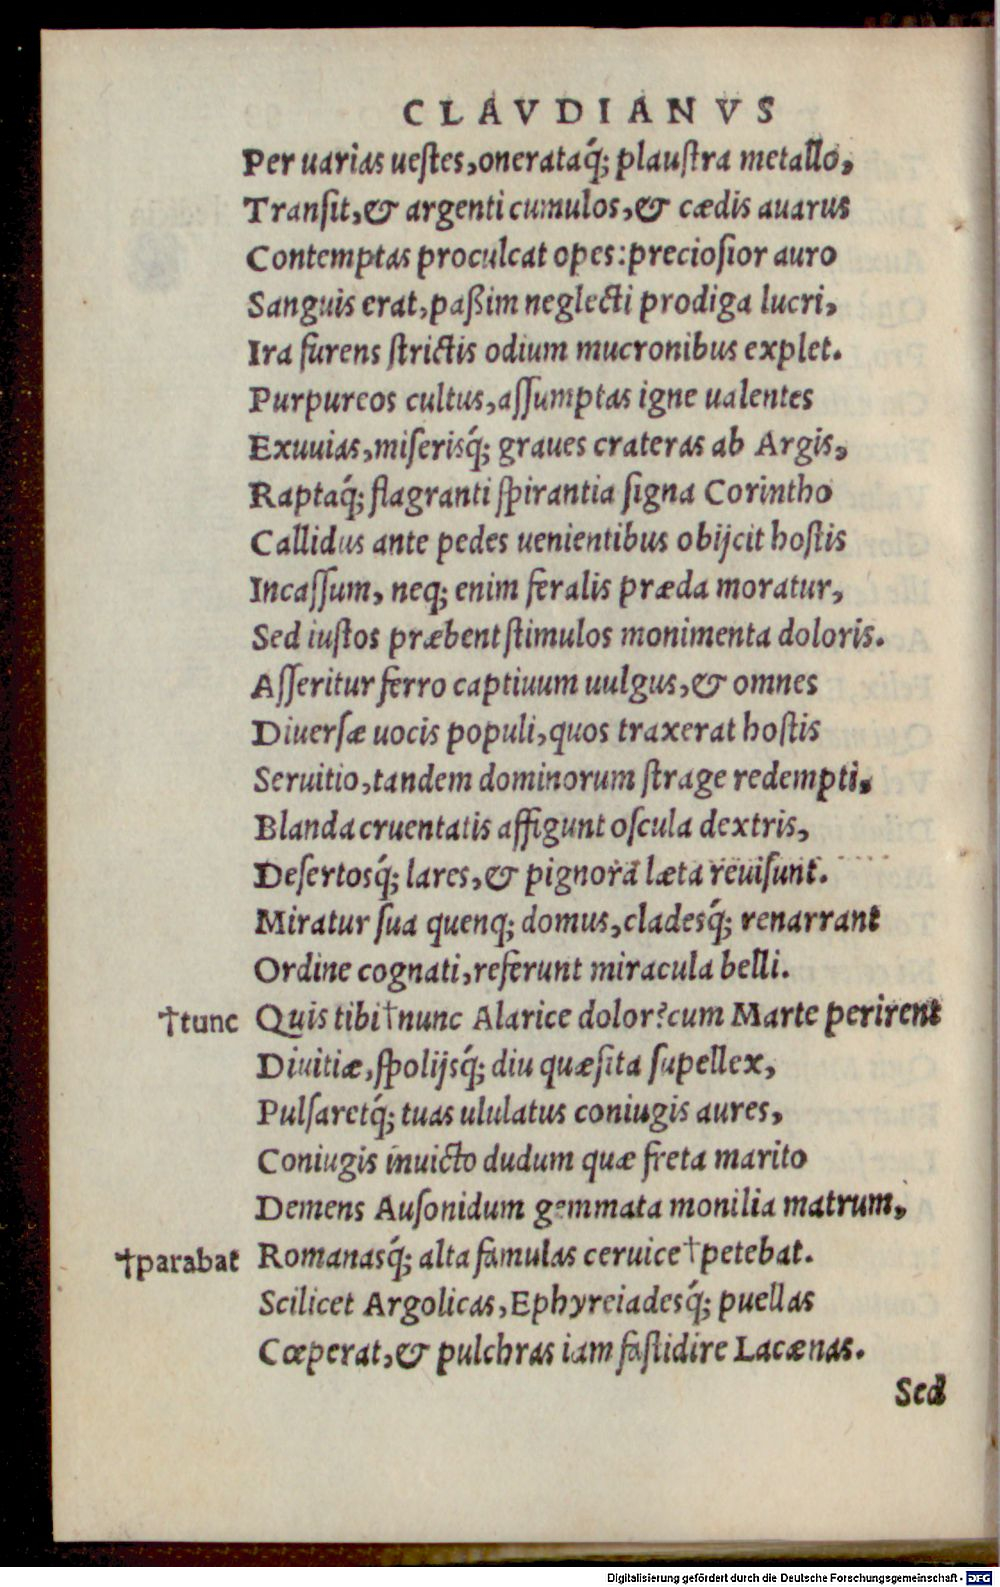 CLAVDIANVS
Per uarias uestes, onerataq́; plaustra metallo,
Transit, & argenti cumulos, & cædis auarus
Contemptas proculcat opes: preciosior auro
Sanguis erat, paßim neglecti prodiga lucri,
Ira furens strictis odium mucronibus explet.
Purpureos cultus, assumptas igne ualentes
Exuuias, miserisq́; graues crateras ab Argis,
Raptaq́; flagranti spirantia signa Corintho
Callidus ante pedes uenientibus obijcit hostis
Incassum, neq; enim feralis præda moratur,
Sed iustos præbent stimulos monimenta doloris.
Asseritur ferro captiuum uulgus, & omnes
Diuersæ uocis populi, quos traxerat hostis
Seruitio, tandem dominorum strage redempti,
Blanda cruentatis affigunt oscula dextris,
Desertosq́; lares, & pignora læta reuisunt.
Miratur sua quenq; domus, cladesq́; renarrant
Ordine cognati, referunt miracula belli.
†tunc Quis tibi †nunc Alarice dolor? cum Marte perirent
Diuitiæ, spolijsq́; diu quæsita supellex,
Pulsaretq́; tuas ululatus coniugis aures,
Coniugis inuicto dudum quæ freta marito
Demens Ausonidum gemmata monilia matrum,
†parabat Romanasq́; alta famulas ceruice †petebat.
Scilicet Argolicas, Ephyreiadesq́; puellas
Cœperat, & pulchras iam fastidire Lacænas.
Sed
Digitalisierung gefördert durch die Deutsche Forschungsgemeinschaft - DFG